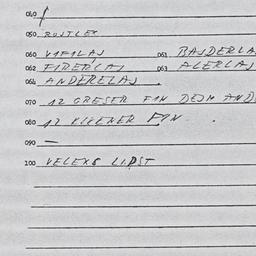 040 /
050 BOJTLEX
060 VIFILAJ 061 BAJDERLA
062 FIRERLAJ 063 ALERLAJ
064 ANDERELAJ
070 12 GRESER FIN DEJM AND
080 12 KLENER FIN .
090 —
100 VELEXS LIDST